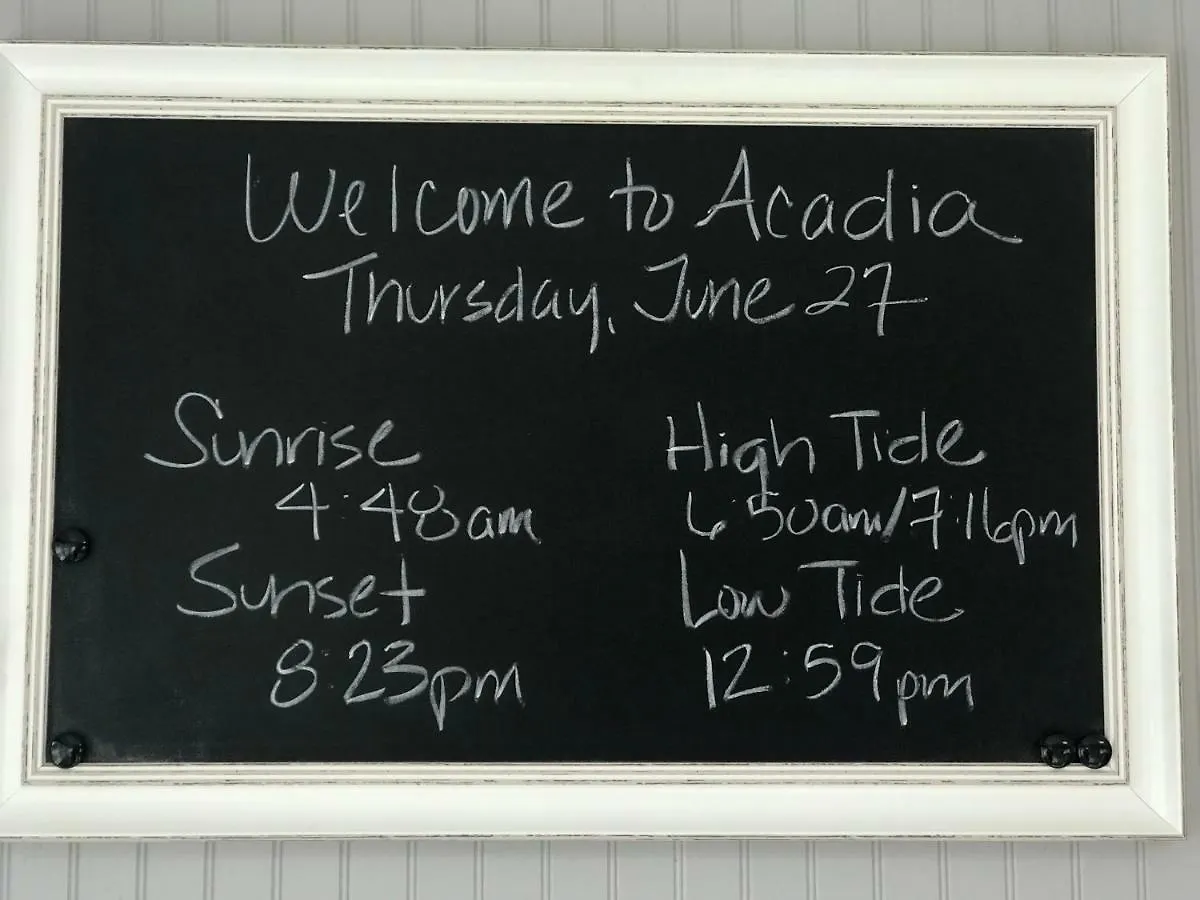 Welcome to Acadia
Thursday, June 27
Sunrise
4:48am
Sunset
8:23pm
High Tide
6:50am/7:16pm
Low Tide
12:59pm